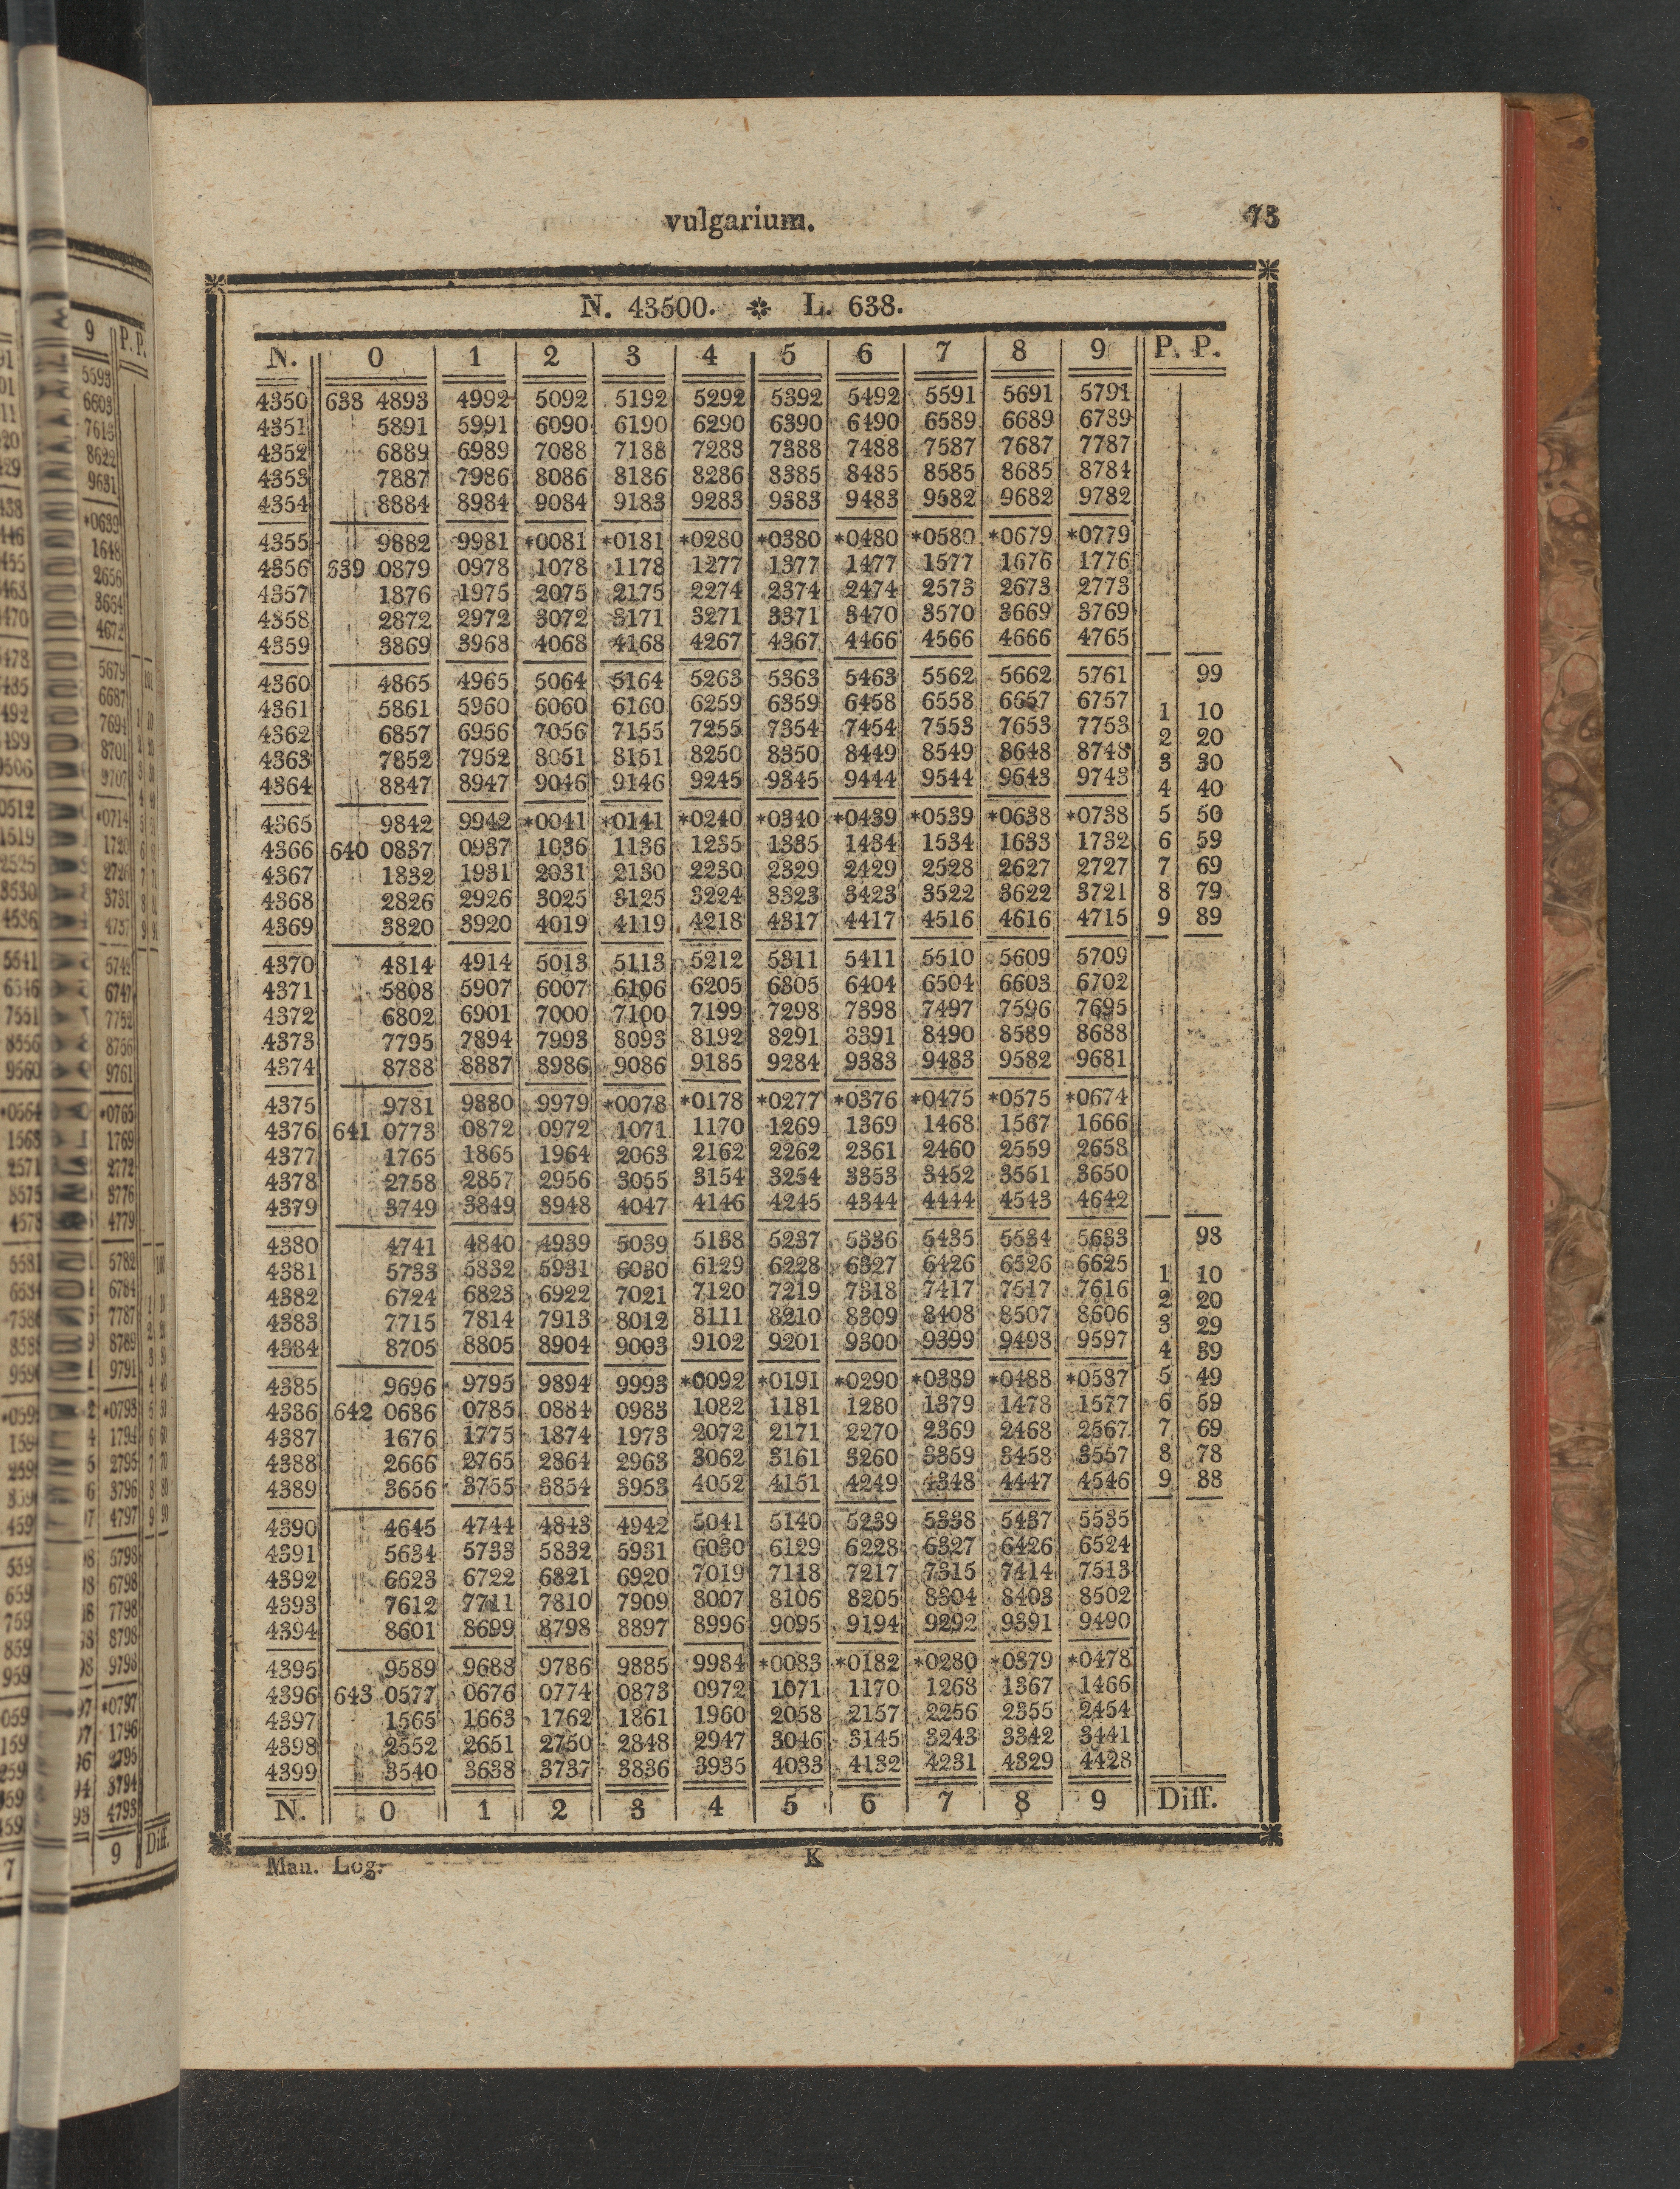 vulgarium. 73
N. 43500. ✽ L. 638.
N. 0 1 2 3 4 5 6 7 8 9 P. P.
4350 638 4893 4992 5092 5192 5292 5392 5492 5591 5691 5791
4351 5891 5991 6090 6190 6290 6390 6490 6589 6689 6789
4352 6889 6989 7088 7188 7288 7388 7488 7587 7687 7787
4353 7887 7986 8086 8186 8286 8385 8485 8585 8685 8784
4354 8884 8984 9084 9183 9283 9383 9483 9582 9682 9782
4355 9882 9981 *0081 *0181 *0280 *0380 *0480 *0580 *0679 *0779
4356 639 0879 0978 1078 1178 1277 1377 1477 1577 1676 1776
4357 1876 1975 2075 2175 2274 2374 2474 2573 2673 2773
4358 2872 2972 3072 3171 3271 3371 3470 3570 3669 3769
4359 3869 3968 4068 4168 4267 4367 4466 4566 4666 4765
4360 4865 4965 5064 5164 5263 5363 5463 5562 5662 5761 99
4361 5861 5960 6060 6160 6259 6359 6458 6558 6657 6757 1 10
4362 6857 6956 7056 7155 7255 7354 7454 7553 7653 7753 2 20
4363 7852 7952 8051 8151 8250 8350 8449 8549 8648 8748 3 30
4364 8847 8947 9046 9146 9245 9345 9444 9544 9643 9743 4 40
4365 9842 9942 *0041 *0141 *0240 *0340 *0439 *0539 *0638 *0738 5 50
4366 640 0837 0937 1036 1136 1235 1335 1434 1534 1633 1732 6 59
4367 1832 1931 2031 2130 2230 2329 2429 2528 2627 2727 7 69
4368 2826 2926 3025 3125 3224 3323 3423 3522 3622 3721 8 79
4369 3820 3920 4019 4119 4218 4317 4417 4516 4616 4715 9 89
4370 4814 4914 5013 5113 5212 5311 5411 5510 5609 5709
4371 5808 5907 6007 6106 6205 6305 6404 6504 6603 6702
4372 6802 6901 7000 7100 7199 7298 7398 7497 7596 7695
4373 7795 7894 7993 8093 8192 8291 8391 8490 8589 8688
4374 8788 8887 8986 9086 9185 9284 9383 9483 9582 9681
4375 9781 9880 9979 *0078 *0178 *0277 *0376 *0475 *0575 *0674
4376 641 0773 0872 0972 1071 1170 1269 1369 1468 1567 1666
4377 1765 1865 1964 2063 2162 2262 2361 2460 2559 2658
4378 2758 2857 2956 3055 3154 3254 3353 3452 3551 3650
4379 3749 3849 3948 4047 4146 4245 4344 4444 4543 4642
4380 4741 4840 4939 5039 5138 5237 5336 5435 5534 5633 98
4381 5733 5832 5931 6030 6129 6228 6327 6426 6526 6625 1 10
4382 6724 6823 6922 7021 7120 7219 7318 7417 7517 7616 2 20
4383 7715 7814 7913 8012 8111 8210 8309 8408 8507 8606 3 29
4384 8705 8805 8904 9003 9102 9201 9300 9399 9498 9597 4 39
4385 9696 9795 9894 9993 *0092 *0191 *0290 *0389 *0488 *0587 5 49
4386 642 0686 0785 0884 0983 1082 1181 1280 1379 1478 1577 6 59
4387 1676 1775 1874 1973 2072 2171 2270 2369 2468 2567 7 69
4388 2666 2765 2864 2963 3062 3161 3260 3359 3458 3557 8 78
4389 3656 3755 3854 3953 4052 4151 4249 4348 4447 4546 9 88
4390 4645 4744 4843 4942 5041 5140 5239 5338 5437 5535
4391 5634 5733 5832 5931 6030 6129 6228 6327 6426 6524
4392 6623 6722 6821 6920 7019 7118 7217 7315 7414 7513
4393 7612 7711 7810 7909 8007 8106 8205 8304 8403 8502
4394 8601 8699 8798 8897 8996 9095 9194 9292 9391 9490
4395 9589 9688 9786 9885 9984 *0083 *0182 *0280 *0379 *0478
4396 643 0577 0676 0774 0873 0972 1071 1170 1268 1367 1466
4397 1565 1663 1762 1861 1960 2058 2157 2256 2355 2454
4398 2552 2651 2750 2848 2947 3046 3145 3243 3342 3441
4399 3540 3638 3737 3836 3935 4033 4132 4231 4329 4428
N. 0 1 2 3 4 5 6 7 8 9 Diff.
Man. Log. K